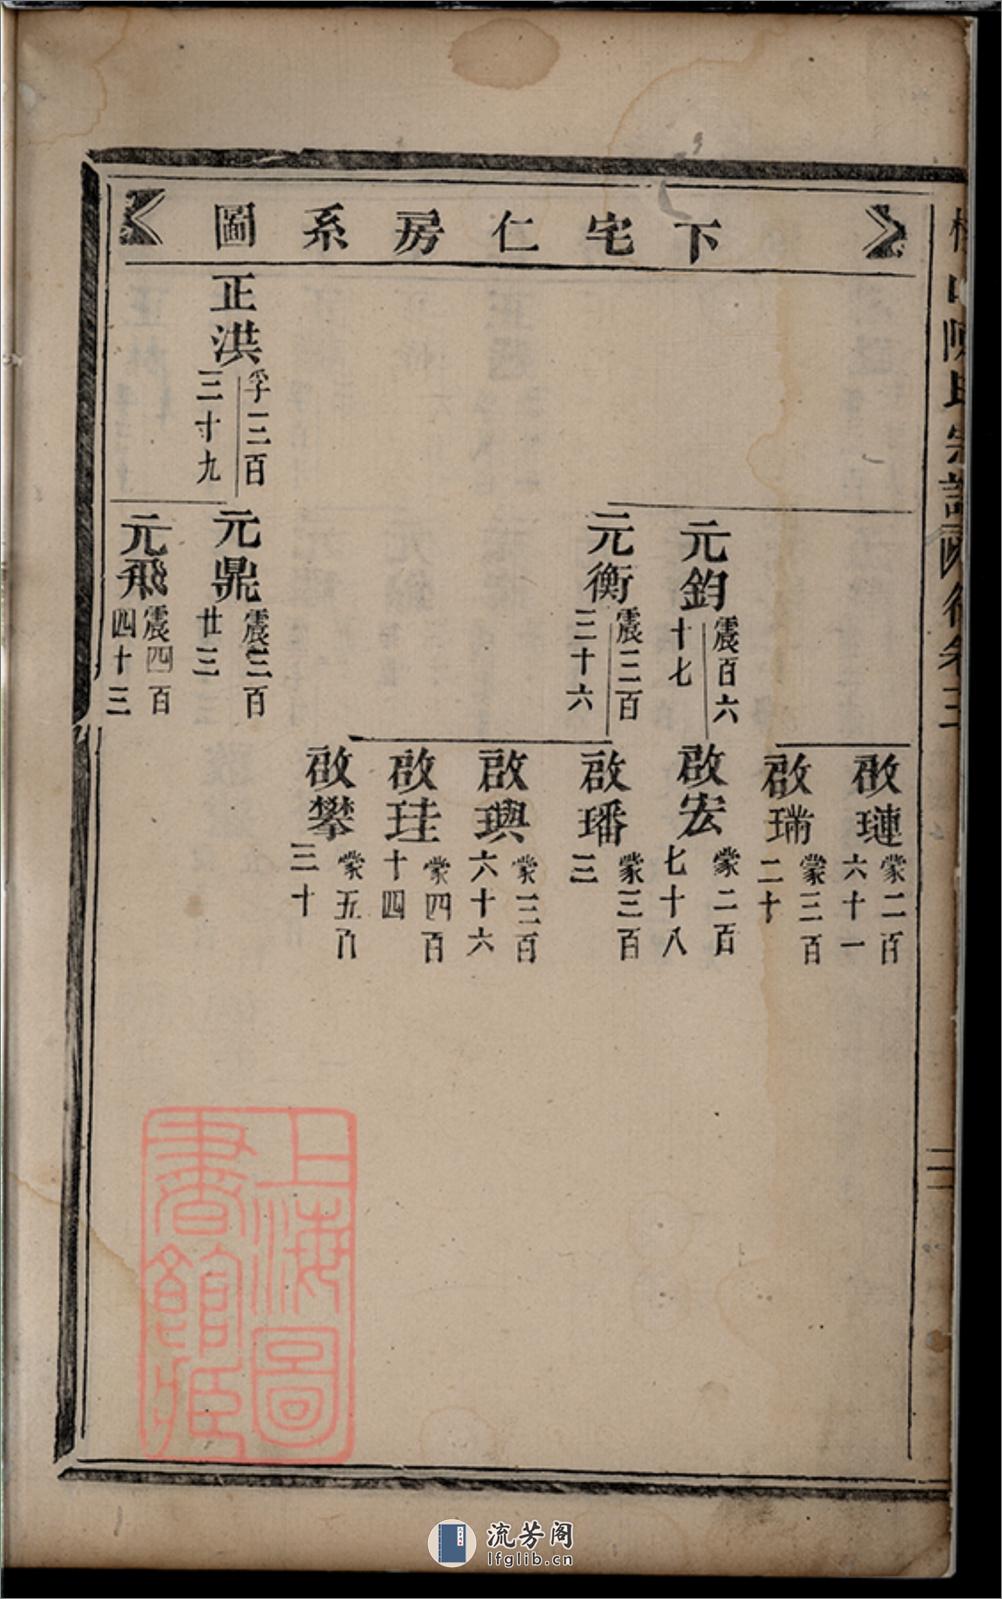 下宅仁房系圖
正洪 孚三百三十九
元鈞 震百六十七
元衡 震三百三十六
元鼎 震三百廿三
元飛 震四百四十三
啟璉 蒙二百六十一
啟瑞 蒙三百二十
啟宏 蒙二百七十八
啟璠 蒙三百三
啟璵 蒙三百六十六
啟珪 蒙四百十四
啟攀 蒙五百三十
陳氏宗譜
卷三
二
上海圖書館藏
流芳阁
lfglib.cn